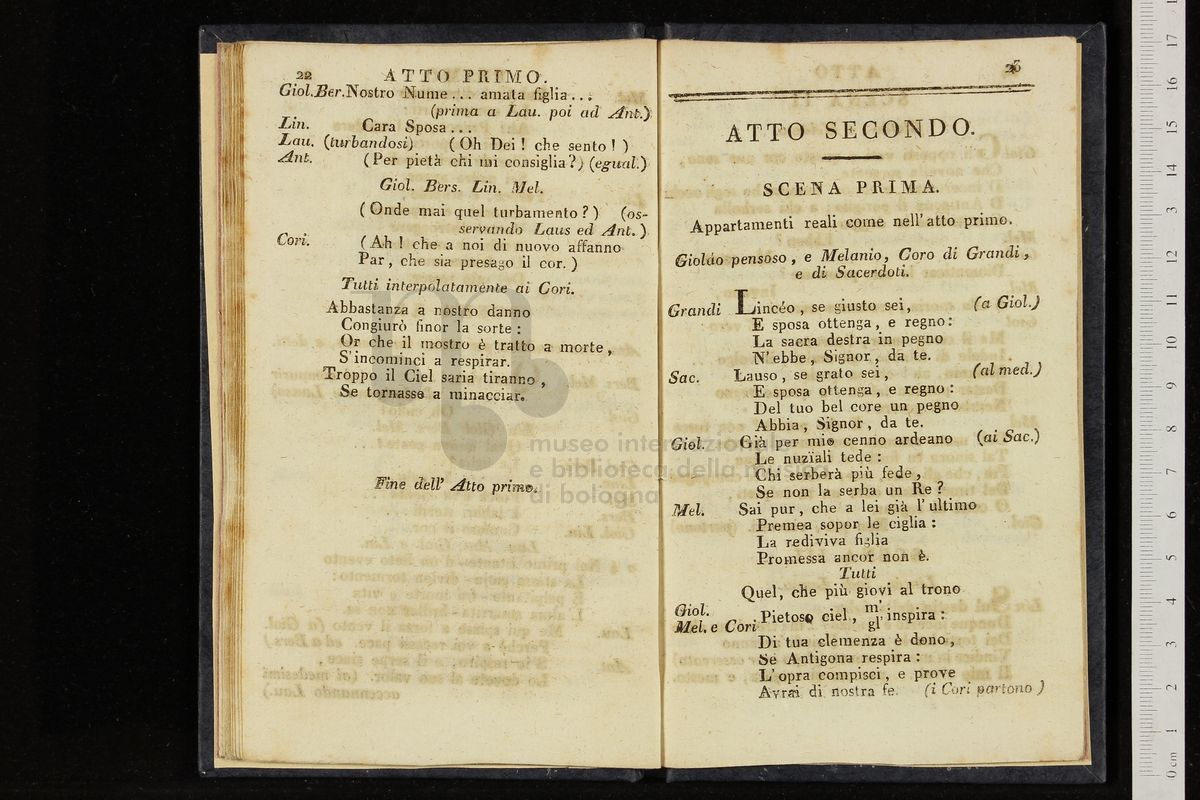 22 ATTO PRIMO.
Giol.Ber.Nostro Nume... amata figlia...
(prima a Lau. poi ad Ant.)
Lin. Cara Sposa...
Lau. (turbandosi) (Oh Dei! che sento!)
Ant. (Per pietà chi mi consiglia?) (egual.)
Giol. Bers. Lin. Mel.
(Onde mai quel turbamento?) (os-
servando Laus ed Ant.)
Cori. (Ah! che a noi di nuovo affanno
Par, che sia presago il cor.)
Tutti interpolatamente ai Cori.
Abbastanza a nostro danno
Congiurò finor la sorte:
Or che il mostro è tratto a morte,
S'incominci a respirar.
Troppo il Ciel saria tiranno,
Se tornasse a minacciar.
Fine dell' Atto primo.
23
ATTO SECONDO.
SCENA PRIMA.
Appartamenti reali come nell'atto primo.
Giolao pensoso, e Melanio, Coro di Grandi,
e di Sacerdoti.
Grandi Lincéo, se giusto sei, (a Giol.)
E sposa ottenga, e regno:
La sacra destra in pegno
N'ebbe, Signor, da te.
Sac. Lauso, se grato sei, (al med.)
E sposa ottenga, e regno:
Del tuo bel core un pegno
Abbia, Signor, da te.
Giol. Già per mio cenno ardeano (ai Sac.)
Le nuzïali tede:
Chi serberà più fede,
Se non la serba un Re?
Mel. Sai pur, che a lei già l'ultimo
Premea sopor le ciglia:
La rediviva figlia
Promessa ancor non è.
Tutti
Quel, che più giovi al trono
Giol. m'
Mel. e Cori Pietoso ciel, gl' inspira:
Di tua clemenza è dono,
Se Antigona respira:
L'opra compisci, e prove
Avrai di nostra fe. (i Cori partono)
museo internazionale
e biblioteca della musica
di bologna
0 cm 1 2 3 4 5 6 7 8 9 10 11 12 13 14 15 16 17